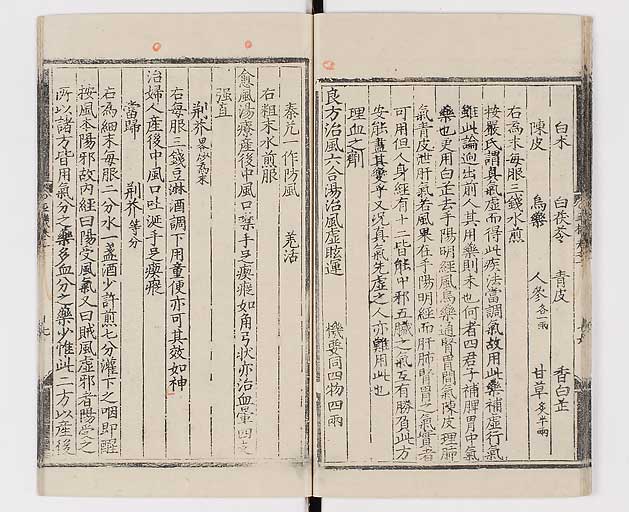 白朮　白茯苓　青皮　香白芷
陳皮　烏藥　人參各一兩　甘草炙半兩
右為末每服三錢水煎
按嚴氏謂真氣虛而得此疾法當調氣故用此藥補虛行氣
雖此論逈出前人其用藥則未也何者四君子補脾胃中氣
藥也更用白芷去手陽明經風烏藥通腎胃間氣陳皮理肺
氣青皮泄肝氣若風果在手陽明經而肝肺腎胃之氣實者
可用但人身經有十二皆能中邪五臟之氣互有勝負此方
安能盡其變乎又況真氣先虛之人亦難用此也
理血之劑
良方治風六合湯治風虛眩運　機要同四物四兩
秦艽一作防風　羌活
右粗末水煎服
愈風湯療產後中風口噤手足瘈瘲如角弓狀亦治血暈四支
强直
荆芥畧炒為末
右每服三錢豆淋酒調下用童便亦可其效如神
治婦人產後中風口吐涎手足瘈瘲
當歸　荆芥等分
右為細末每服二分水一盞酒少許煎七分灌下之咽即醒
按風本陽邪故內經曰陽受風氣又曰賊風虛邪者陽受之
所以諸方皆用氣分之藥多血分之藥少惟此二方以產後